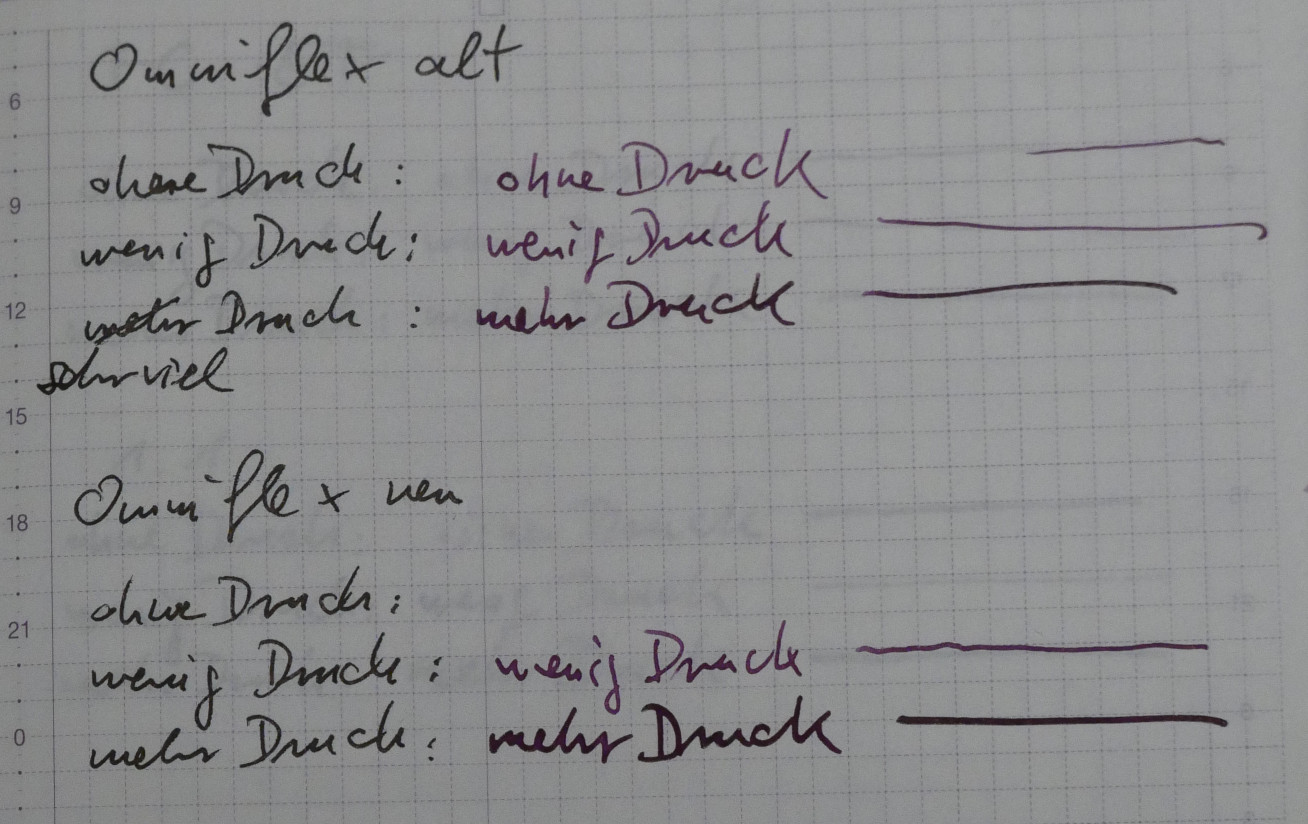 Omniflex alt
6
ohne Druck: ohne Druck
9
wenig Druck: wenig Druck
12
mehr Druck: mehr Druck
sehr viel
15
Omniflex neu
18
ohne Druck:
21
wenig Druck: wenig Druck
0
mehr Druck: mehr Druck